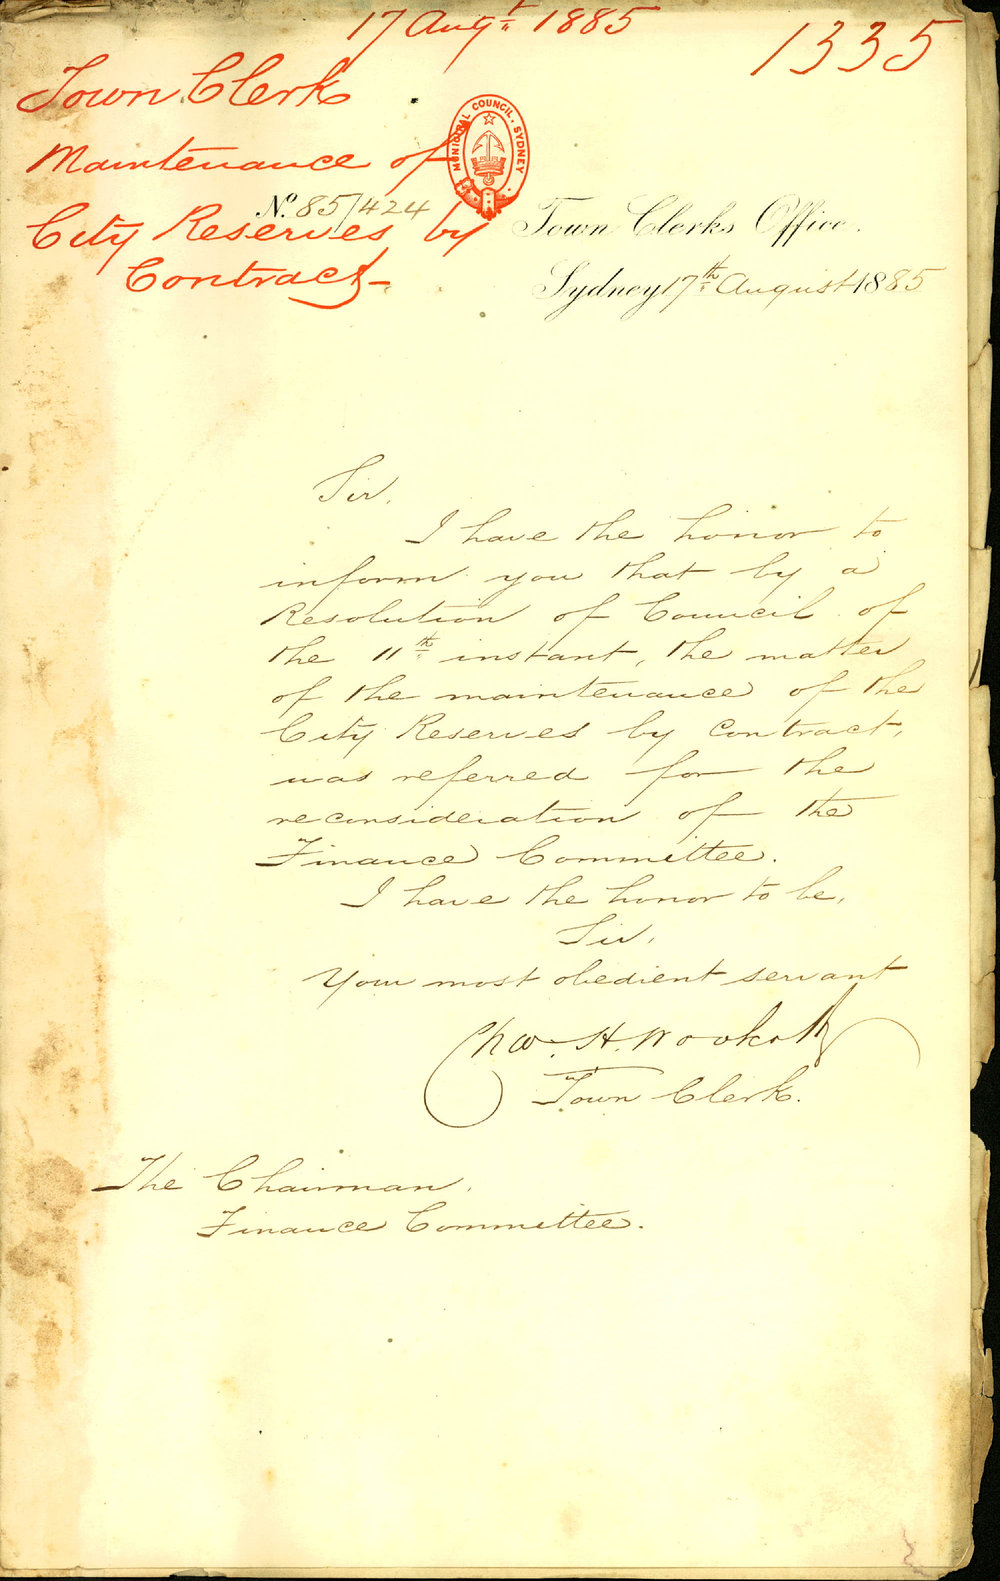 17 Augt 1885
1335
Town Clerk
Maintenance of
City Reserves by
Contract
MUNICIPAL COUNCIL. SYDNEY
No. 85/424
Town Clerks Office.
Sydney 17th August 1885
Sir,
I have the honor to
inform you that by a
Resolution of Council of
the 11th instant, the matter
of the maintenance of the
City Reserves by Contract,
was referred for the
reconsideration of the
Finance Committee.
I have the honor to be,
Sir,
Your most obedient servant
Chas. H. Woolcott
Town Clerk.
The Chairman,
Finance Committee.